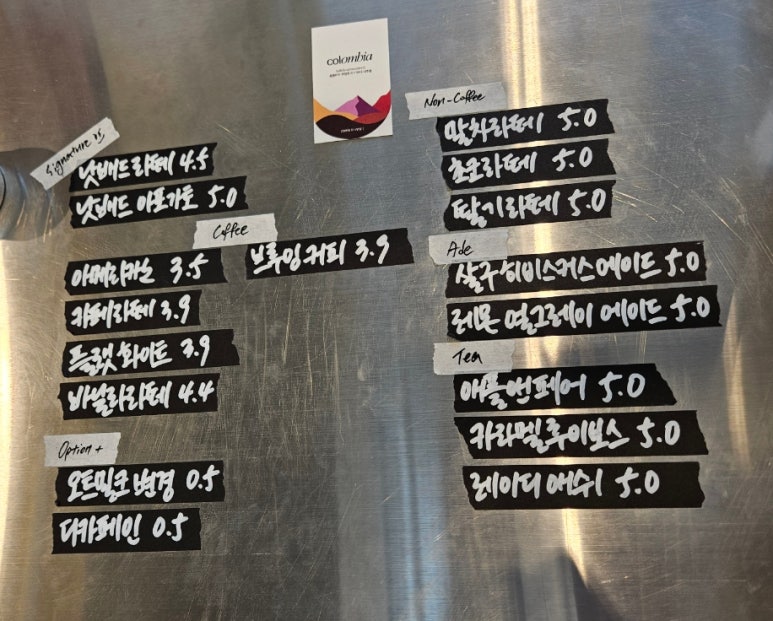 colombia
Signature
낫배드라떼 4.5
낫배드 아포가토 5.0
Coffee
브루잉커피 3.9
아메리카노 3.5
카페라떼 3.9
플랫화이트 3.9
바닐라라떼 4.4
Option +
오트밀크변경 0.5
디카페인 0.5
Non-Coffee
말차라떼 5.0
초코라떼 5.0
딸기라떼 5.0
Ade
살구히비스커스에이드 5.0
레몬 얼그레이 에이드 5.0
Tea
애플앤페어 5.0
카라멜루이보스 5.0
레이디애쉬 5.0